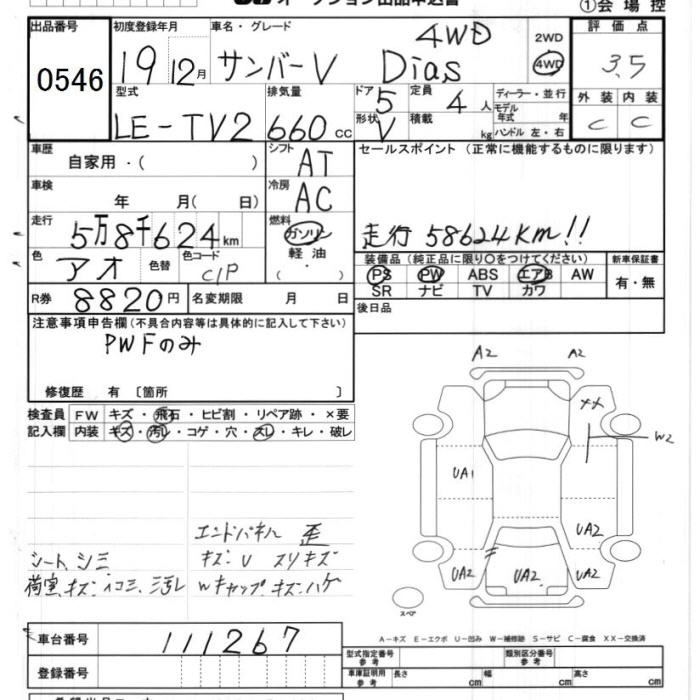 オークション出品申込書
①会場控
出品番号 0546
初度登録年月 19 12月
車名・グレード サンバーV 4WD Dias
2WD 4WD
評価点 3.5
外装 内装
C C
型式 LE-TV2
排気量 660 cc
ドア 5 形状 V
定員 4 人
積載 kg
ディーラー・並行
モデル年式 年
ハンドル 左・右
車歴 自家用・( )
シフト AT
セールスポイント (正常に機能するものに限ります)
走行 58624Km!!
車検 年 月( 日)
冷房 AC
走行 5万8千624km
燃料 ガソリン 軽油・( )
色 アオ 色替 色コード C/P
装備品 (純正品に限り〇をつけてください)
PS PW ABS エアB AW
SR ナビ TV カワ
新車保証書 有・無
R券 8820円 名変期限 月 日
後日品
注意事項申告欄 (不具合内容等は具体的に記入して下さい)
PWFのみ
修復歴 有 〔箇所 〕
検査員記入欄
FW キズ・飛石・ヒビ割・リペア跡・×要
内装 キズ・汚レ・コゲ・穴・スレ・キレ・破レ
A2 A2
XX
W2
UA1
UA2
UA2 UA2 UA2
スペア
エンドパネル 歪
シート、シミ
キズ・U スリキズ
荷室、キズ・イコミ、汚レ
Wキャップ キズ・ハゲ
A-キズ E-エクボ U-凹み W-補修跡 S-サビ C-腐食 XX-交換済
車台番号 111267
登録番号
型式指定番号 参考
類別区分番号 参考
車庫証明用 参考 長さ cm 幅 cm 高さ cm